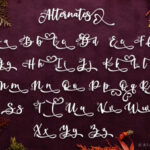 Alternates
Aa Bb Cc Dd Ee Ff
Gg Hh Ii Jj Kk Ll
Mm Nn Oo Pp Qq Rr
Ss Tt Uu Vv Ww
Xx Yy Zz